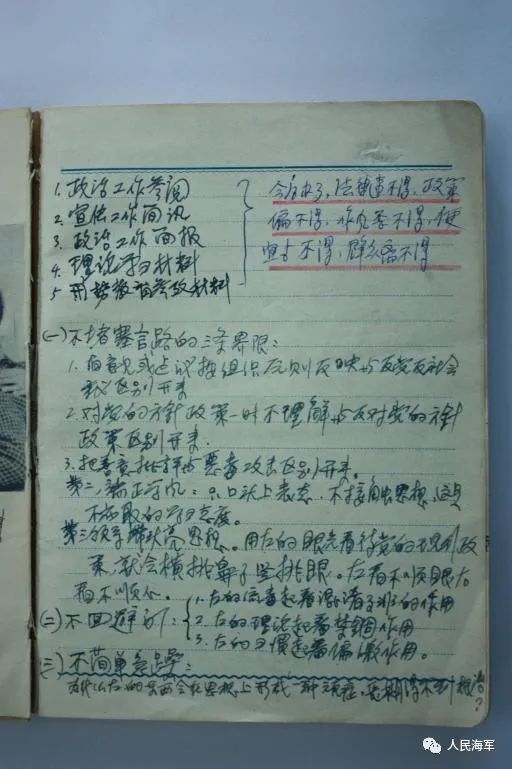 1. 政治工作参阅
2. 宣传工作简讯
3. 政治工作简报
4. 理论学习材料
5 形势教育参考材料
法律违不得，政策
偏不得，作风歪不得，便
宜占不得，群众离不得
(一) 不堵塞言路的三条界限：
1. 有意见或建议按组织原则反映与反党反社会
区别开来
2. 对党的方针政策一时不理解与反对党的方针
政策区别开来.
3. 把善意批评与恶意攻击区别开来。
第二，端正学风：只口头上表态，不接触思想，这是
不可取的学习态度。
思想。用左的眼光看待党的现行政
策，就会横挑鼻子竖挑眼。左看不顺眼右
看不顺心。
(二) 不回避
1. 左的流毒起着混淆是非的作用
2. 左的理论起着禁锢作用
3. 左的习惯起着偏激作用。
(三) 不简单急躁：
为什么左的东西会在思想上形成一种顽症，长期得不到根治？
人民海军